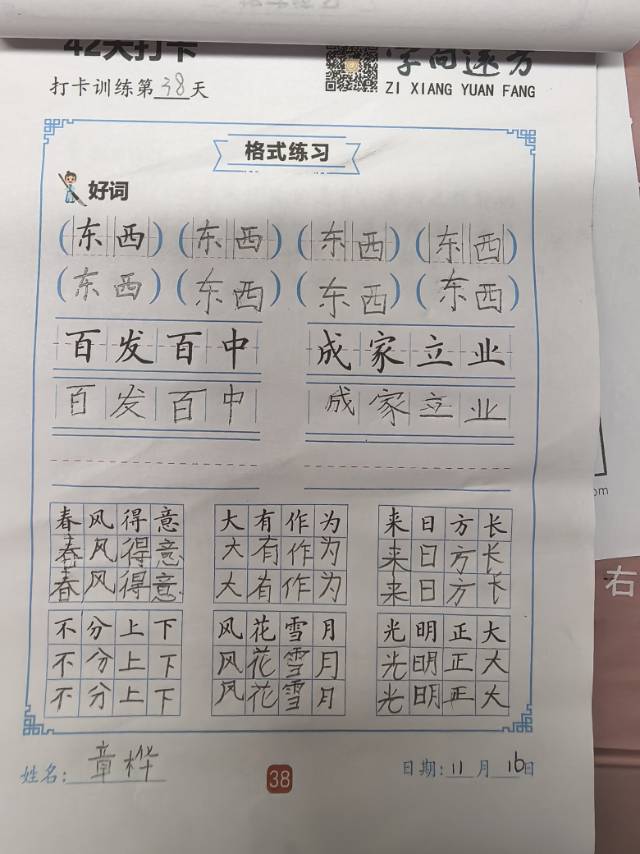 42天打卡
打卡训练第38天
字向速方
ZI XIANG YUAN FANG
格式练习
好词
(东西) (东西) (东西) (东西)
(东西) (东西) (东西) (东西)
百发百中 成家立业
百发百中 成家立业
春风得意 大有作为 来日方长
春风得意 大有作为 来日方长
春风得意 大有作为 来日方长
不分上下 风花雪月 光明正大
不分上下 风花雪月 光明正大
不分上下 风花雪月 光明正大
姓名:章桦 38 日期:11月16日
右
om